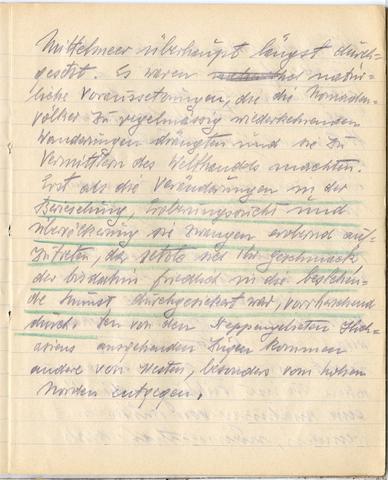 Mittelmeer überhaupt längst durch-
gesetzt. Es waren natür-
liche Voraussetzungen, die die Nomaden-
völker zu regelmässig wiederkehrenden
Wanderungen drängten und sie zu
Vermittlern des Welthandels machten.
Erst als die Veränderungen in der
Bereicherung, Eroberungssucht und
Übervölkerung sie zwangen erobernd auf-
zutreten, da setzte sich ihr Geschmack
der bis dahin friedlich in die bestehen-
de Kunst durchgesickert war, vorherrschend
durch. Den von den Steppengebieten Hoch-
asiens ausgehenden Zügen kommen
andere von Westen, besonders vom hohen
Norden entgegen.